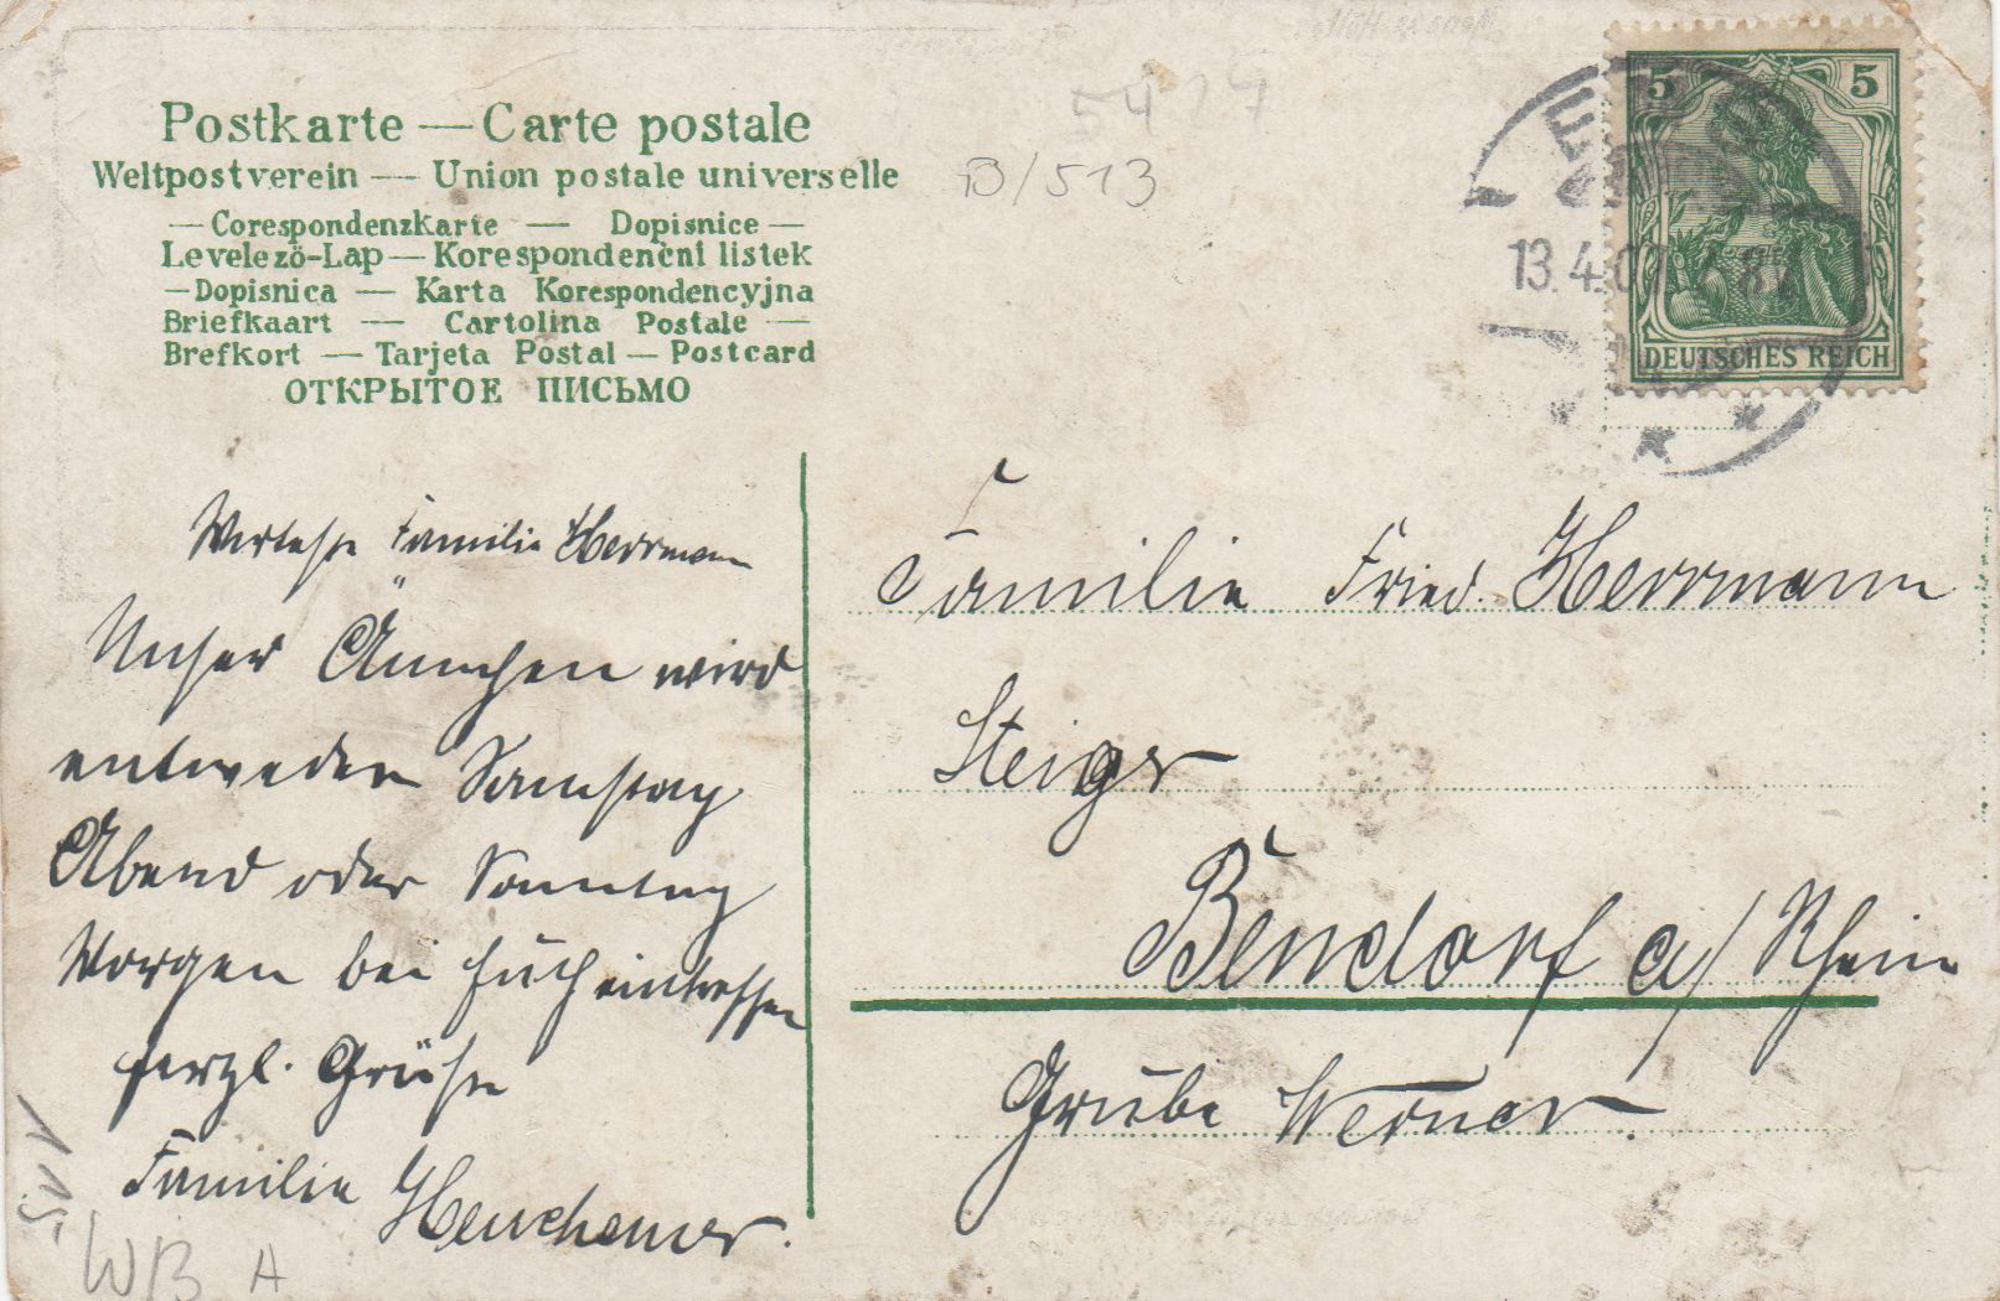 Postkarte — Carte postale
Weltpostverein — Union postale universelle
— Corespondenzkarte — Dopisnice —
Levelezö-Lap — Korespondenčni listek
— Dopisnica — Karta Korespondencyjna
Briefkaart — Cartolina Postale —
Brefkort — Tarjeta Postal — Postcard
ОТКРЫТОЕ ПИСЬМО
B/513
5 5
DEUTSCHES REICH
13.4.07
Werteste Familie Herrmann
Unser Ännchen wird
entweder Samstag
Abend oder Sonntag
Morgen bei Euch eintreffen
herzl. Grüße
Familie
Familie Fried. Herrmann
Steiger
Bendorf a/ Rhein
Grube Werner.
WB A